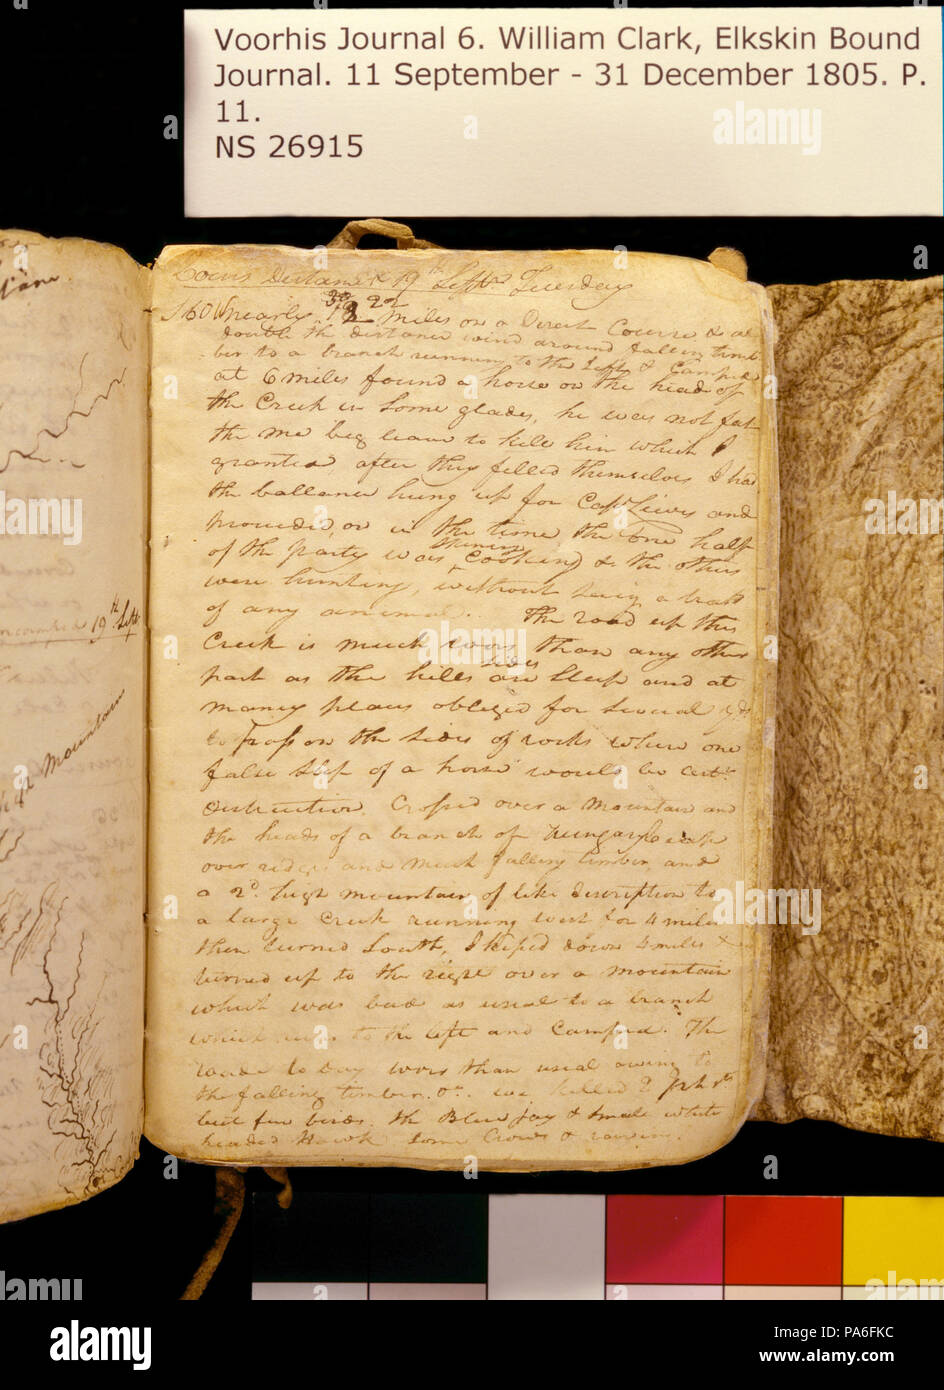 Voorhis Journal 6. William Clark, Elkskin Bound
Journal. 11 September - 31 December 1805. P.
11.
NS 26915
19th Sept
Mountain
Cours Distance &c 19th Septr. Tuesday
S 60 W nearly 22 miles on a Derect Course &
double the distance wind around falling timb
ber to a branch running to the left & Camped
at 6 miles found a horse on the head of
the Creek in Some glades, he was not fat
the me beg leave to kill him which I
granted after they filled themselves I had
the ballance hung up for Capt Lewis and
proceeded on in the time the one half
of the party was Skinning Cooking & the others
were hunting, without Seeing a track
of any animal. The road up this
Creek is much wors than any other
part as the hills Sides are Steep and at
maney places obliged for Several yds
to pass on the Sides of rocks where one
false Step of a horse would be certn.
distruction. Crossed over a Mountain and
the heads of a branch of hungary Creek
over ridge and much falling timber and
a 2d. high mountain of like discription to
a large Creek running west for 4 miles
then turned South, I keped down 4 miles &
turned up to the right over a mountain
which was bad as usial to a branch
which to the left and Camped. The
roade to day wors than usial owing to
the falling timber &c. we killed 2 Phsts
but fiew birds. the Blue jay & Small white
headed Hawk Some Crows & ravins.
alamy
PA6FKC
www.alamy.com